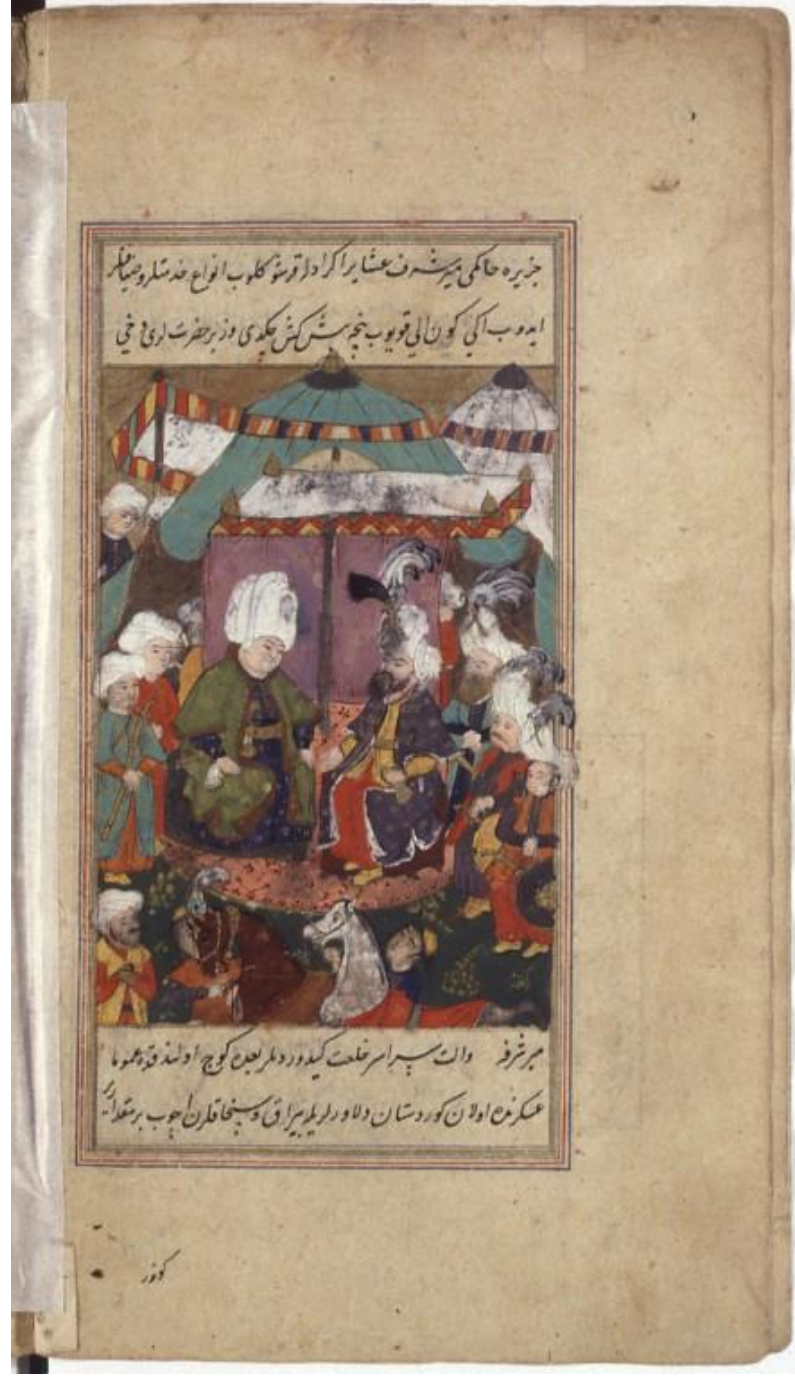 جزیره حاکمی میر شرف عشایر اکراد له قرشو کلوب انواع خدمتلر و ضیافتلر
ایدوب ایکی کون الی قویوب نیچه پیشکش چکدی وزیر حضرتلری دخی
میر شرفه سراسر خلعت کیدوردیلر بعده کوچ اولندقده عموما
عسکرنده اولان کوردستان دلاورلریله یراق و سنجاقلرن اچوب بر مقدار